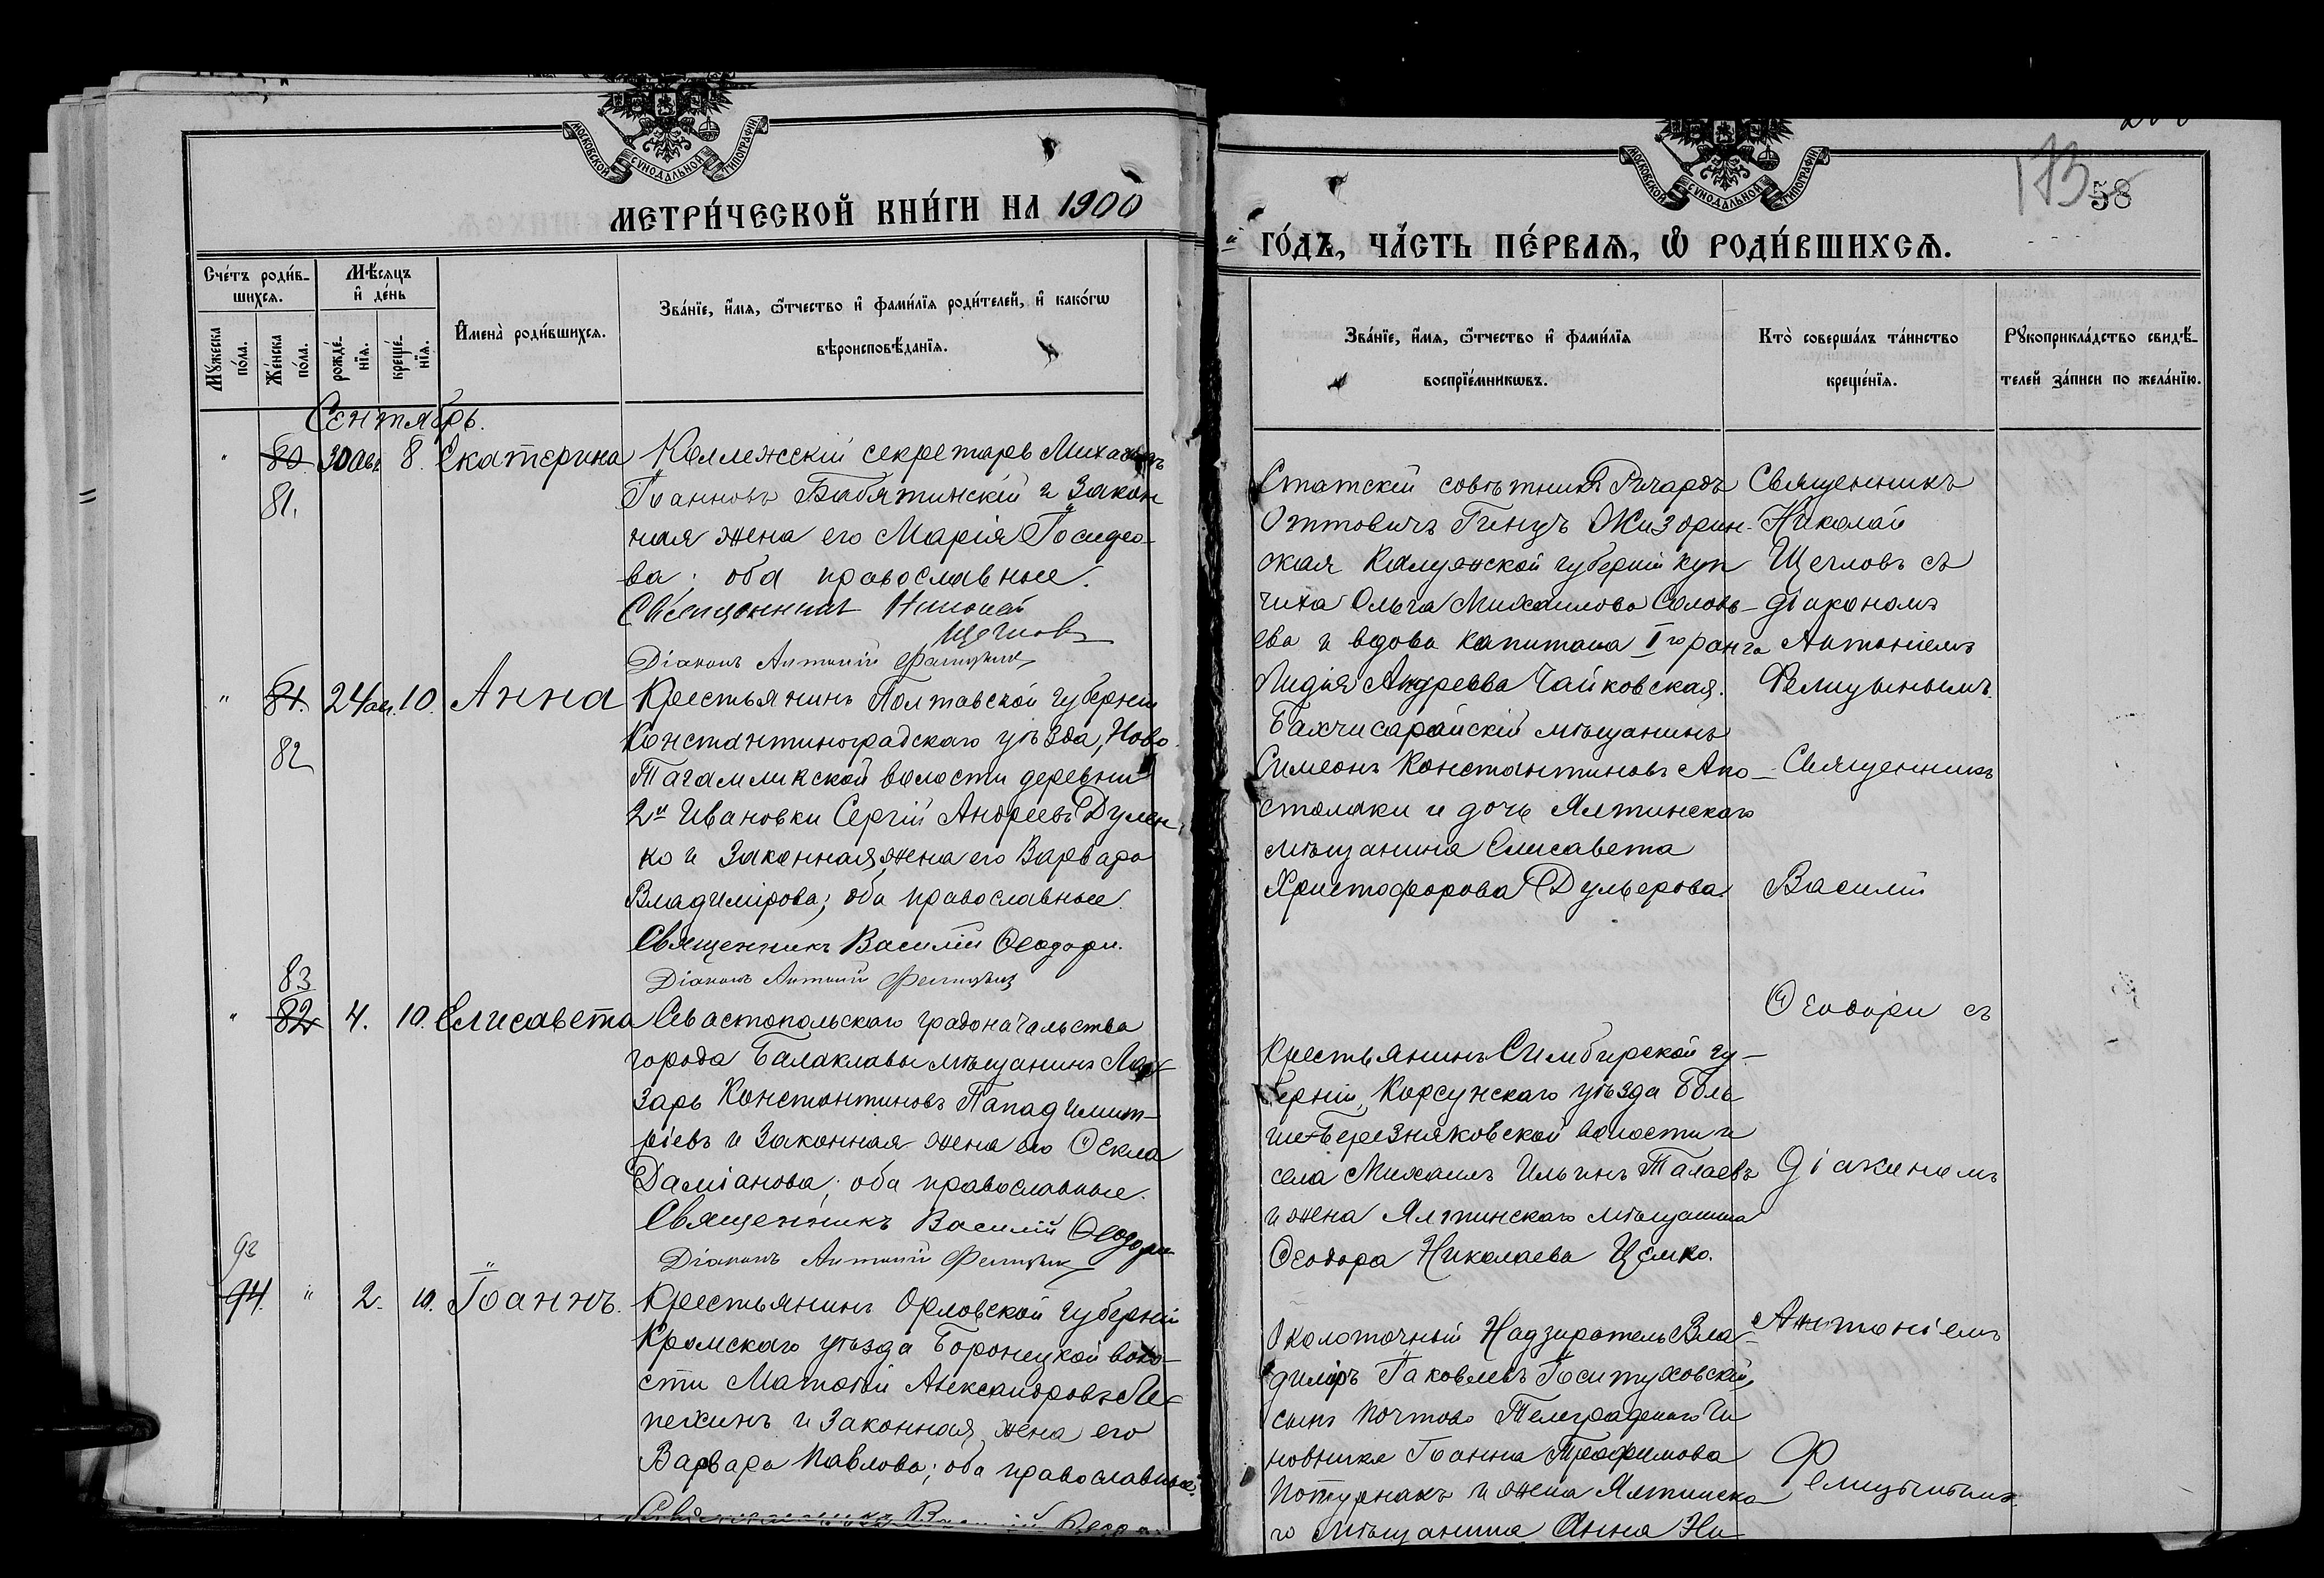 МОСКОВСКОЙ СѴНОДАЛЬНОЙ ТИПОГРАФІИ
МЕТРИ́ЧЕСКОЙ КНИ́ГИ НА 1900
Сче́тъ роди́в-
шихся.
Мѣ́сяцъ
и҆ де́нь
Мꙋ́жеска
по́ла.
Же́нска
по́ла.
рожде́-
нїя.
креще́-
нїя.
И҆мена̀ роди́вшихся.
Зва́нїе, и҆́мя, ѻ҆́тчество и҆ фами́лїя роди́телей, и҆ како́гѡ
вѣроисповѣ́данїя.
Сентябрь.
" 80. 30 авг. 8. Екатерина Коллежскій секретарь Михаилъ
81. Іоанновъ Бабятинскій и закон
ная жена его Марія Іосифо-
ва; оба православные.
Священникъ Николай
Щегловъ
Діаконъ Антоній Фелицынъ
" 81. 24 авг. 10. Анна Крестьянинъ Полтавской губерніи
Константиноградскаго уѣзда, Ново-
82 Тагамликской волости деревни
2й Ивановки Сергій Андреевъ Дулен
ко и законная жена его Варвара
Владимірова; оба православные.
Священникъ Василій Ѳеодори.
Діаконъ Антоній Фелицынъ
83
" 82 4. 10. Елисавета Севастопольскаго градоначальства
города Балаклавы мѣщанинъ Ла-
зарь Константиновъ Пападимит-
ріевъ и законная жена его Ѳекла
Даміанова; оба православные.
Священникъ Василій Ѳеодори
Діаконъ Антоній Фелицынъ
93
94. " 2. 10. Іоаннъ. Крестьянинъ Орловской губерніи
Кромскаго уѣзда Боронецкой воло-
сти Матѳій Александровъ Ле-
пехинъ и законная жена его
Варвара Павлова; оба православные.
Священникъ Василій
МОСКОВСКОЙ СѴНОДАЛЬНОЙ ТИПОГРАФІИ
173
58
ГО́ДЪ, ЧА́СТЬ ПЕ́РВАЯ, Ѡ҆ РОДИ́ВШИХСЯ.
Зва́нїе, и҆́мя, ѻ҆́тчество и҆ фами́лїя
воспрїе́мникѡвъ.
Кто̀ соверша́лъ та́инство
креще́нїя.
Рꙋкоприкла́дство свидѣ́-
телей за́писи по жела́нїю.
Статскій совѣтникъ Ричардъ
Оттовичъ Гинцъ Жиздрин-
ская Калужской губерніи куп
чиха Ольга Михаилова Соловь-
ева и вдова капитана I го ранга
Лидія Андреева Чайковская.
Священникъ
Николай
Щегловъ съ
діакономъ
Антоніемъ
Фелицынымъ.
Бахчисарайскій мѣщанинъ
Симеонъ Константиновъ Апо-
столаки и дочь Ялтинскаго
мѣщанина Елисавета
Христофорова Дульгерова.
Священникъ
Василій
Ѳеодори съ
Крестьянинъ Симбирской гу-
берніи, Корсунскаго уѣзда Боль
ше-Березняковской волости и
села Михаилъ Ильинъ Талаевъ
и жена Ялтинскаго мѣщанина
Ѳеодора Николаева Цемко.
діакономъ
Антоніемъ
Околоточный Надзиратель Вла-
диміръ Іаковлевъ
сынъ Почтово Телеграфнаго Чи
новника Іоанна Трофимова
Потурнакъ и жена Ялтинска-
го мѣщанина Анна Ни-
Фелицынымъ.